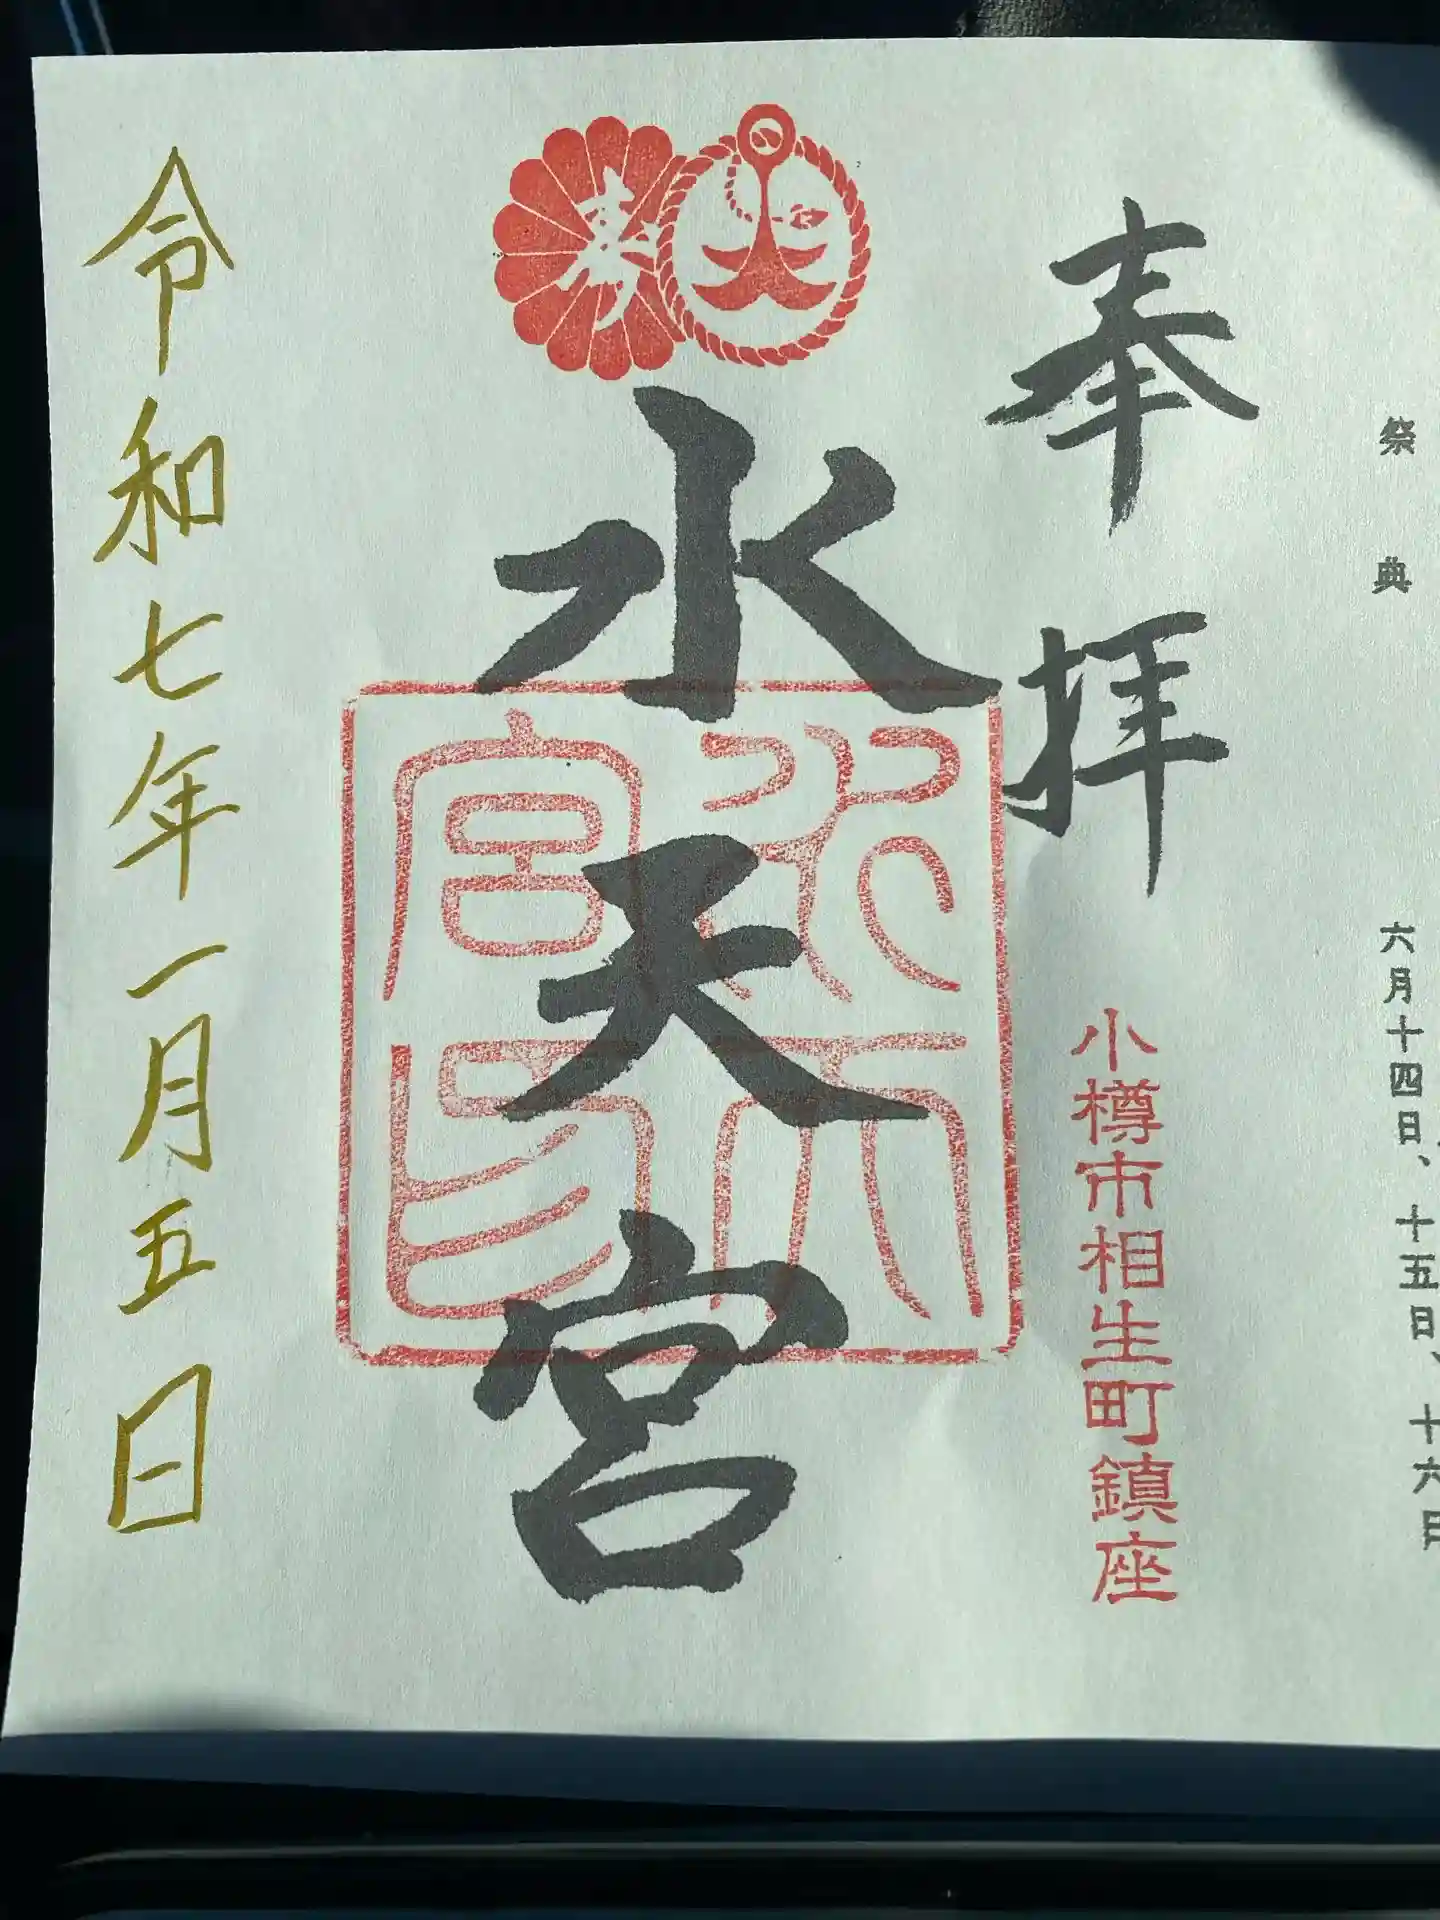 祭典
六月十四日、十五日、十六日
奉拝
小樽市相生町鎮座
水天宮
水天宮印
令和七年一月五日